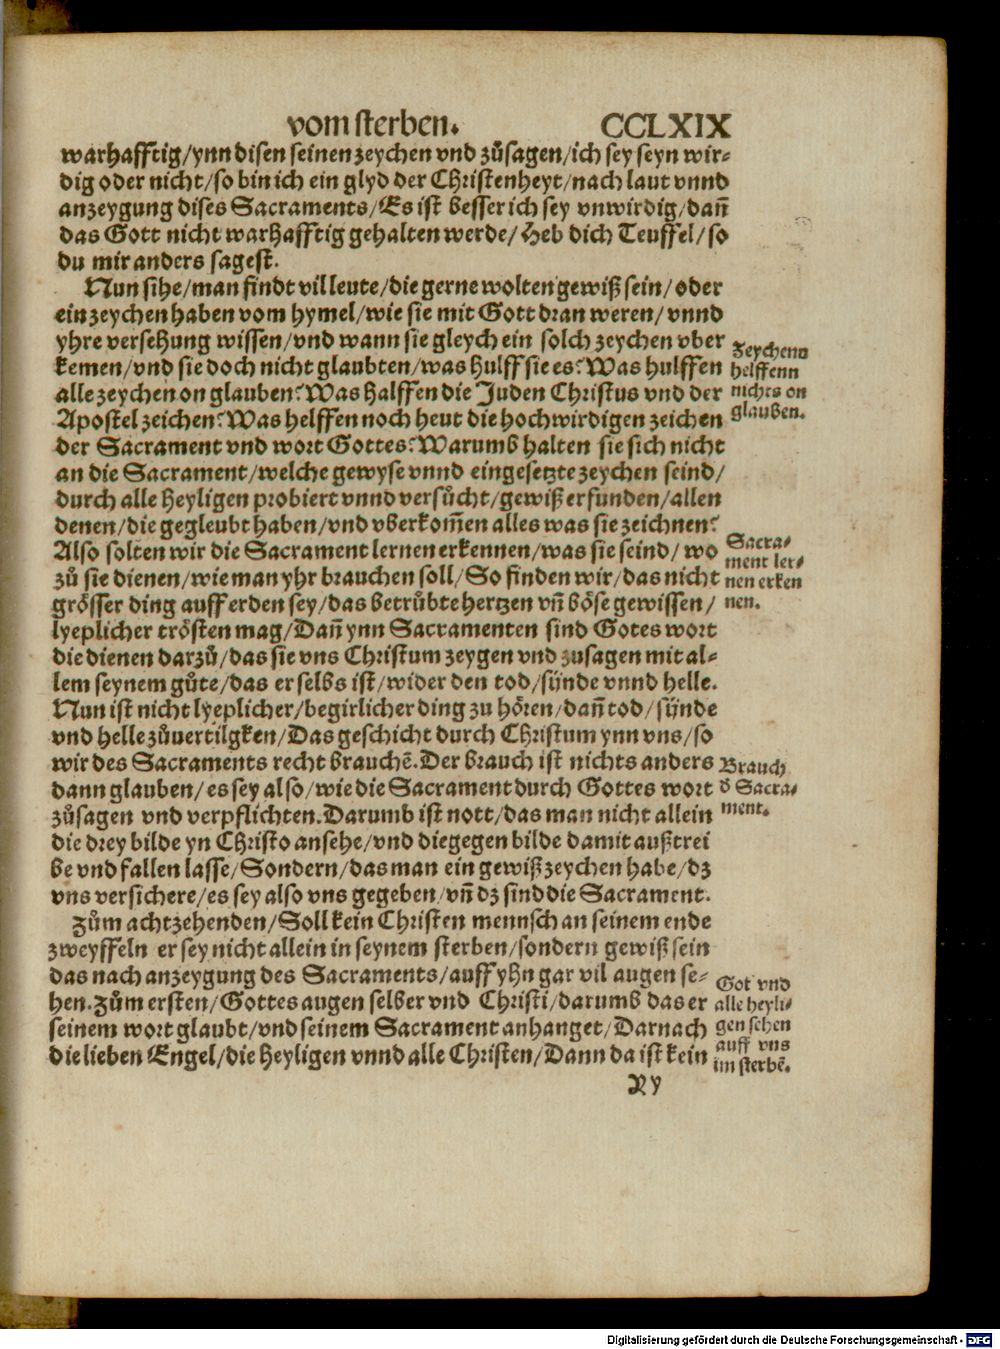 vom sterben. CCLXIX
warhafftig/ynn disen seinen zeychen vnd zůsagen/ich sey seyn wir-
dig oder nicht/so bin ich ein glyd der Christenheyt/nach laut vnnd
anzeygung dises Sacraments/Es ist besser ich sey vnwirdig/dañ
das Gott nicht warhafftig gehalten werde/Heb dich Teuffel/so
du mir anders sagest.
Nun sihe/man findt vil leute/die gerne wolten gewiß sein/oder
ein zeychen haben vom hymel/wie sie mit Gott dran weren/vnnd
yhre versehung wissen/vnd wann sie gleych ein solch zeychen vber
kemen/vnd sie doch nicht glaubten/was hulff sie es? Was hulffen
alle zeychen on glauben? Was halffen die Juden Christus vnd der
Apostel zeichen? Was helffen noch heut die hochwirdigen zeichen
der Sacrament vnd wort Gottes? Warumb halten sie sich nicht
an die Sacrament/welche gewyse vnnd eingesetzte zeychen seind/
durch alle Heyligen probiert vnnd versůcht/gewiß erfunden/allen
denen/die gegleubt haben/vnd vberkom̃en alles was sie zeichnen?
Also solten wir die Sacrament lernen erkennen/was sie seind/wo
zů sie dienen/wie man yhr brauchen soll/So finden wir/das nicht
grösser ding auff erden sey/das betrůbte hertzen vñ böse gewissen/
lyeplicher trösten mag/Dañ ynn Sacramenten sind Gotes wort
die dienen darzů/das sie vns Christum zeygen vnd zusagen mit al-
lem seynem gůte/das er selbs ist/wider den tod/sünde vnnd helle.
Nun ist nicht lyeplicher/begirlicher ding zu hören/dañ tod/sünde
vnd helle zůuertilgken/Das geschicht durch Christum ynn vns/so
wir des Sacraments recht brauchẽ. Der brauch ist nichts anders
dann glauben/es sey also/wie die Sacrament durch Gottes wort
zůsagen vnd verpflichten. Darumb ist nott/das man nicht allein
die drey bilde yn Christo ansehe/vnd die gegen bilde damit außtrei
be vnd fallen lasse/Sondern/das man ein gewiß zeychen habe/dz
vns versichere/es sey also vns gegeben/vñ dz sind die Sacrament.
Zům achtzehenden/Soll kein Christen mennsch an seinem ende
zweyffeln er sey nicht allein in seynem sterben/sondern gewiß sein
das nach anzeygung des Sacraments/auff yhn gar vil augen se-
hen. Zům ersten/Gottes augen selber vnd Christi/darumb das er
seinem wort glaubt/vnd seinem Sacrament anhanget/Darnach
die lieben Engel/die Heyligen vnnd alle Christen/Dann da ist kein
Zeychenn
helffenn
nichts on
glauben.
Sacra-
ment ler-
nen erken
nen.
Brauch
d̕ Sacra-
ment.
Got vnd
alle heyli-
gen sehen
auff vns
im sterbẽ.
Ry
Digitalisierung gefördert durch die Deutsche Forschungsgemeinschaft - DFG